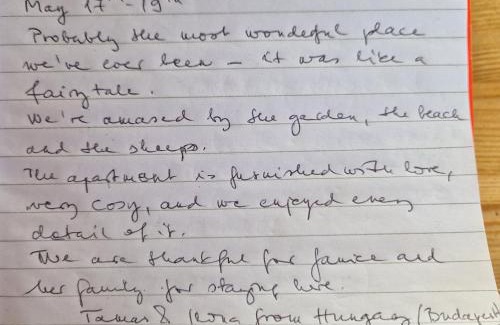 May 17th - 19th
Probably the most wonderful place
we've ever been - it was like a
fairytale.
We're amased by the garden, the beach
and the sheeps.
The apartment is furnished with love,
very cosy, and we enjoyed every
detail of it.
We are thankful for Janice and
her family for staying here.
Tamas & Kora from Hungary (Budapest